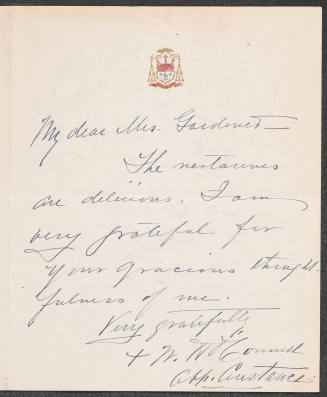 My dear Mrs. Gardener —
The nectarines
are delicious. I am
very grateful for
your gracious thought-
fulness of me.
Very gratefully
+ W. H. O'Connell
Abp. Constance